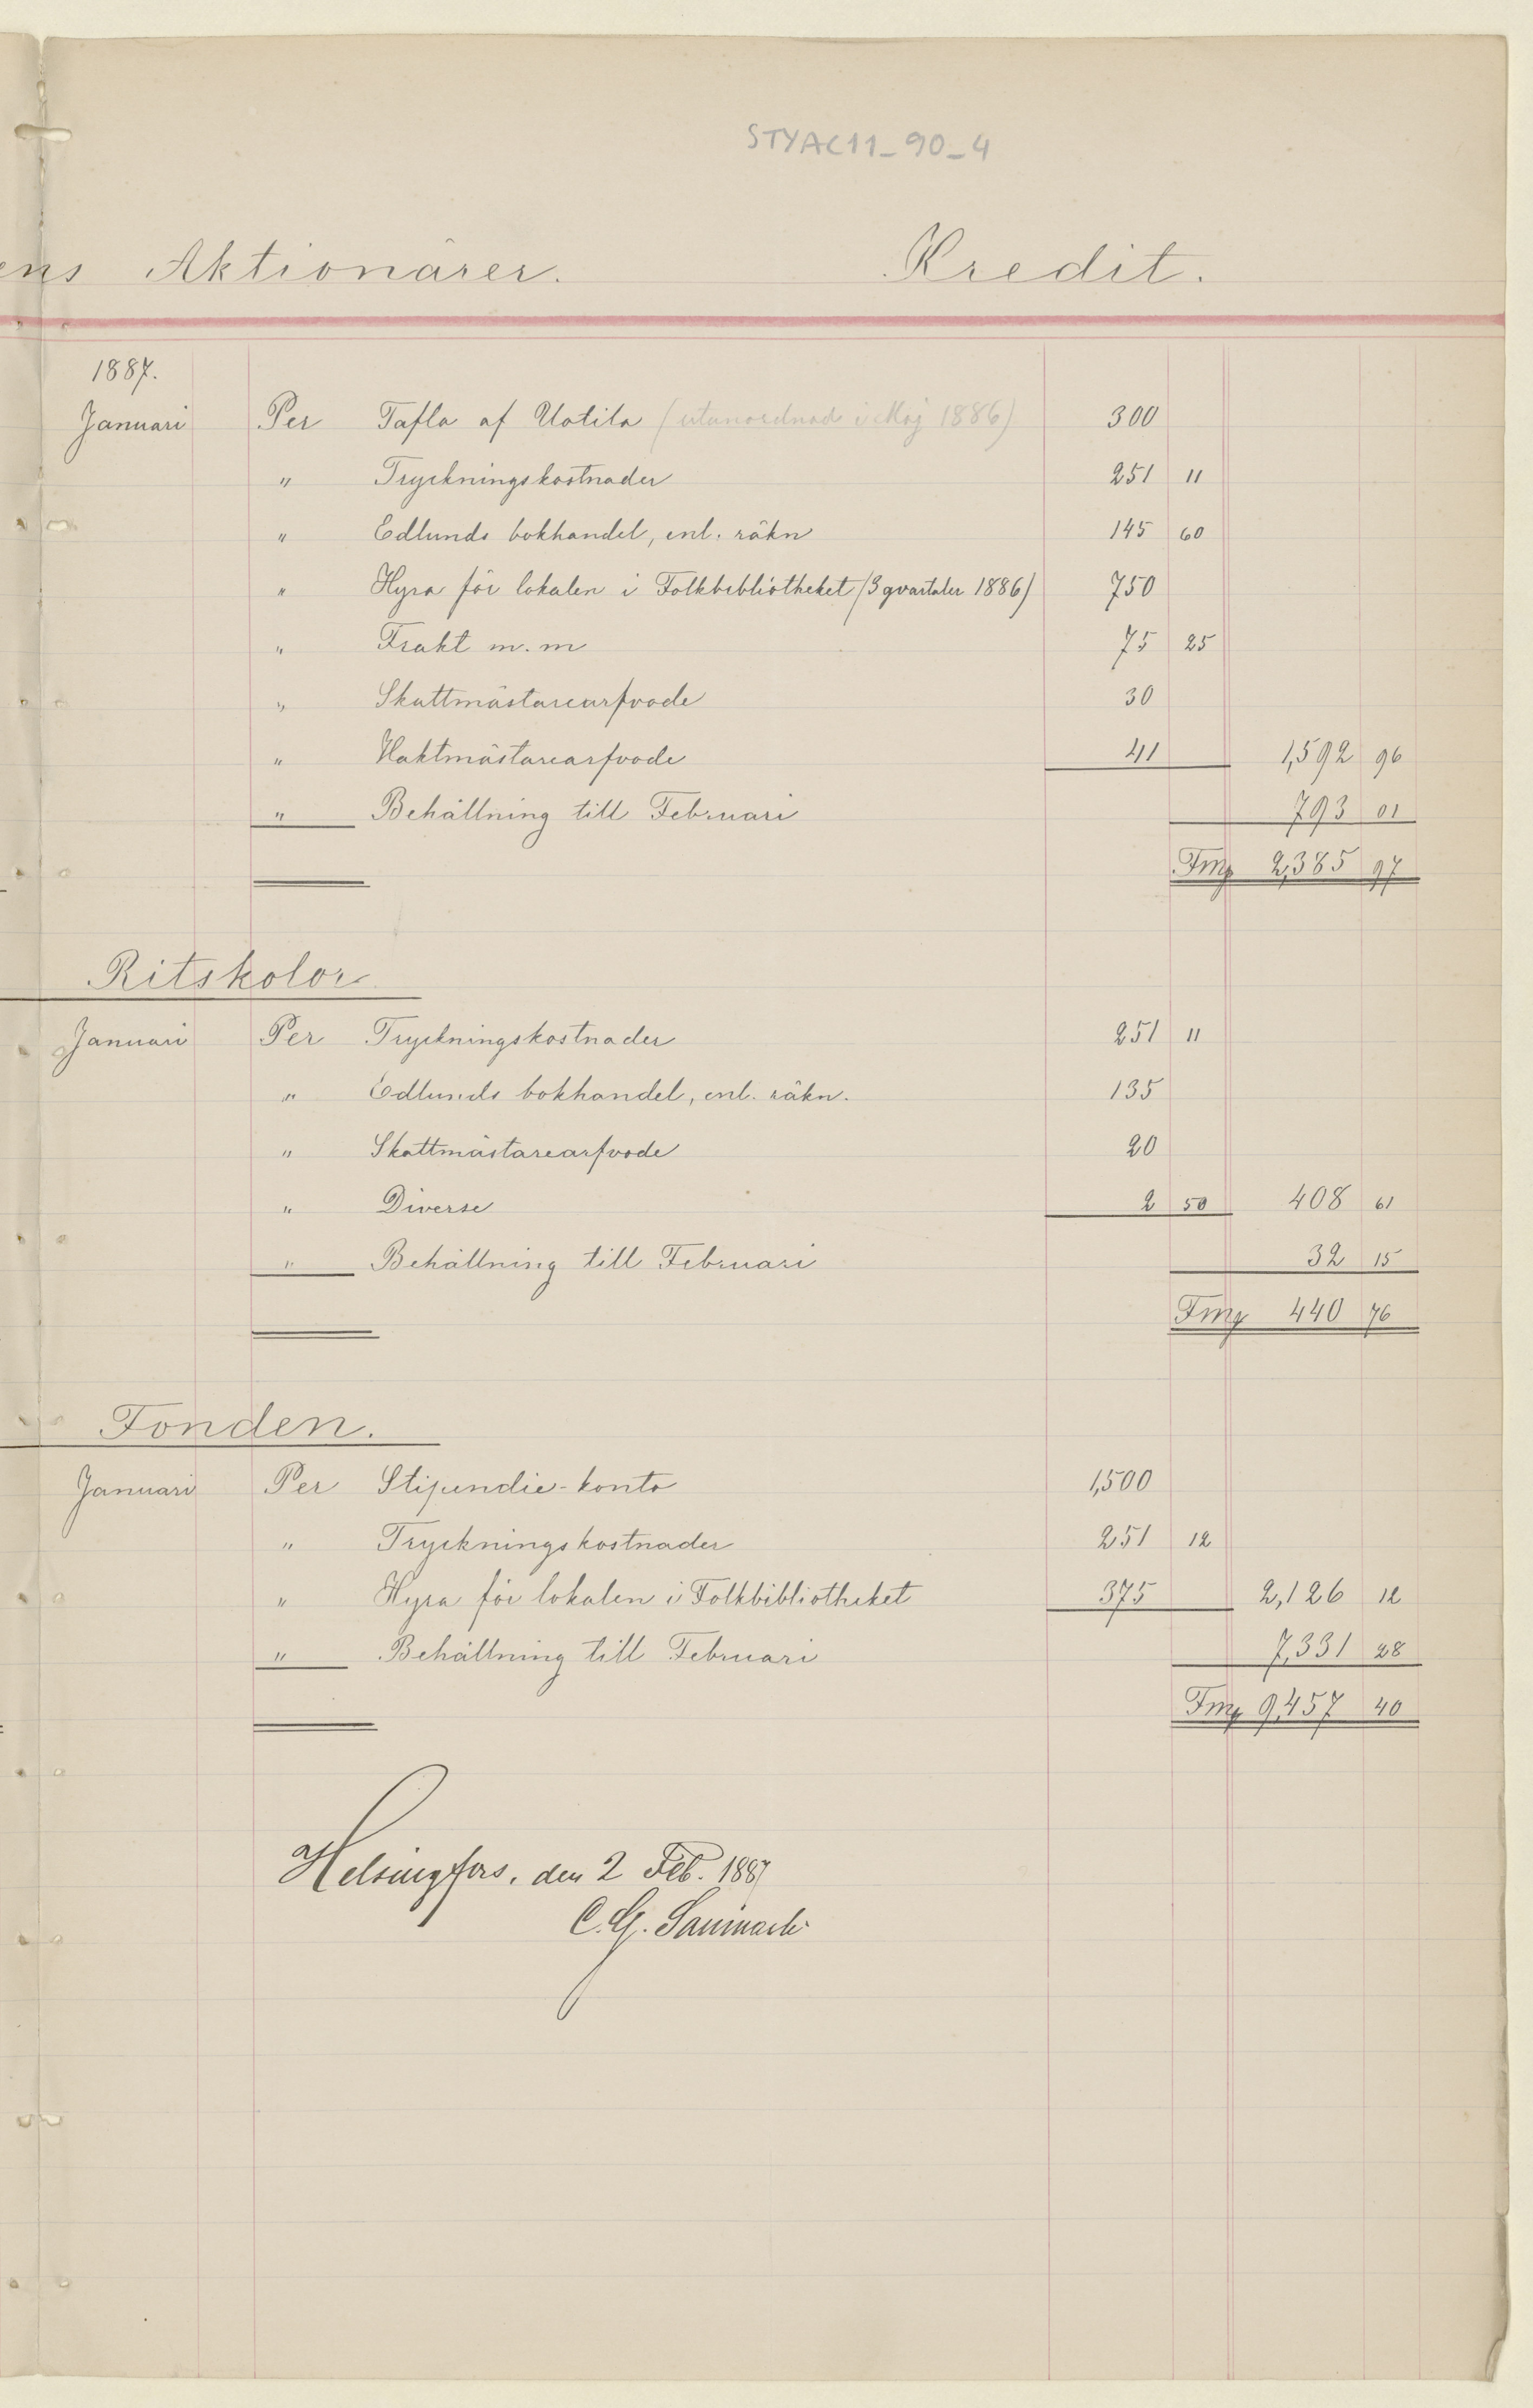 STYAC11_90_4
ens Aktionärer. Kredit.
1887.
Januari Per Tafla af Uotila (utanordnad i Maj 1886) 300
" Tryckningskostnader 251 11
" Edlunds bokhandel, enl. räkn 145 60
" Hyra för lokalen i Folkbibliotheket (3 qvartaler 1886) 750
" Frakt m. m 75 25
" Skattmästarearfvode 30
" Vaktmästarearfvode 41 1,592 96
" Behållning till Februari 793 01
Fmk 2,385 97
Ritskolor
Januari Per Tryckningskostnader 251 11
" Edlunds bokhandel, enl. räkn. 135
" Skattmästarearfvode 20
" Diverse 2 50 408 61
" Behållning till Februari 32 15
Fmk 440 76
Fonden.
Januari Per Stipendie-konto 1,500
" Tryckningskostnader 251 12
" Hyra för lokalen i Folkbibliotheket 375 2,126 12
" Behållning till Februari 7,331 28
Fmk 9,457 40
Helsingfors, den 2 Feb. 1887
C. G. Sanmark